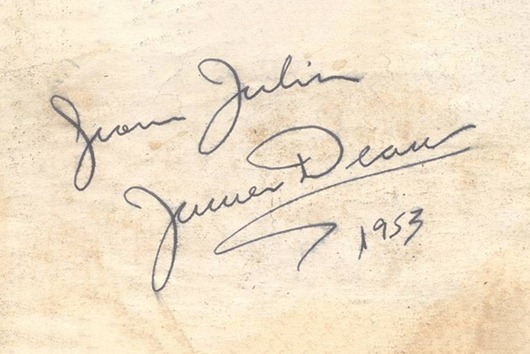 From Julie
James Dean
1953